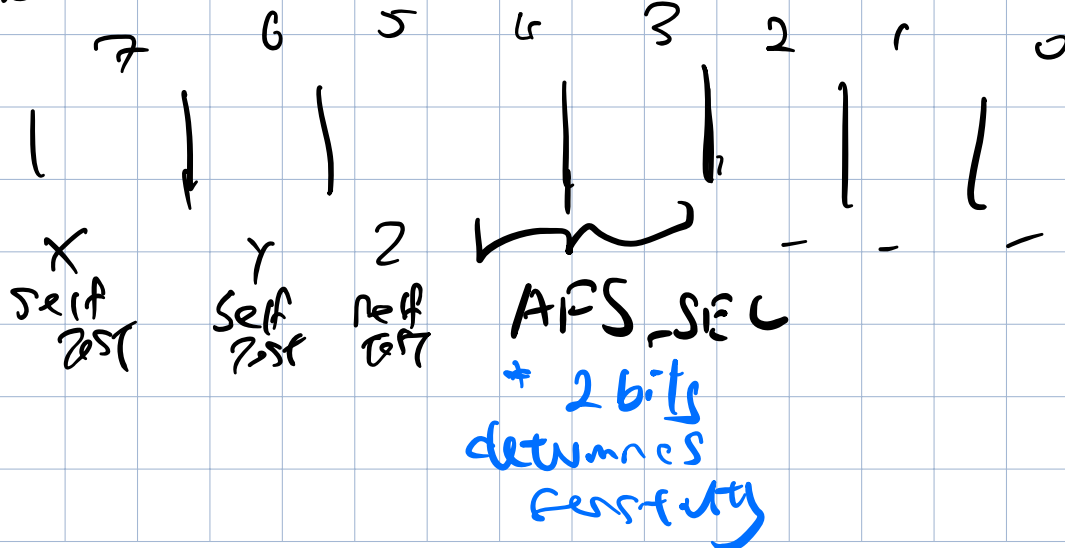 7 6 5 4 3 2 1 0
X Y Z - - -
self self self
test test test
AFS_SEL
* 2 bits
determines
sensitivity